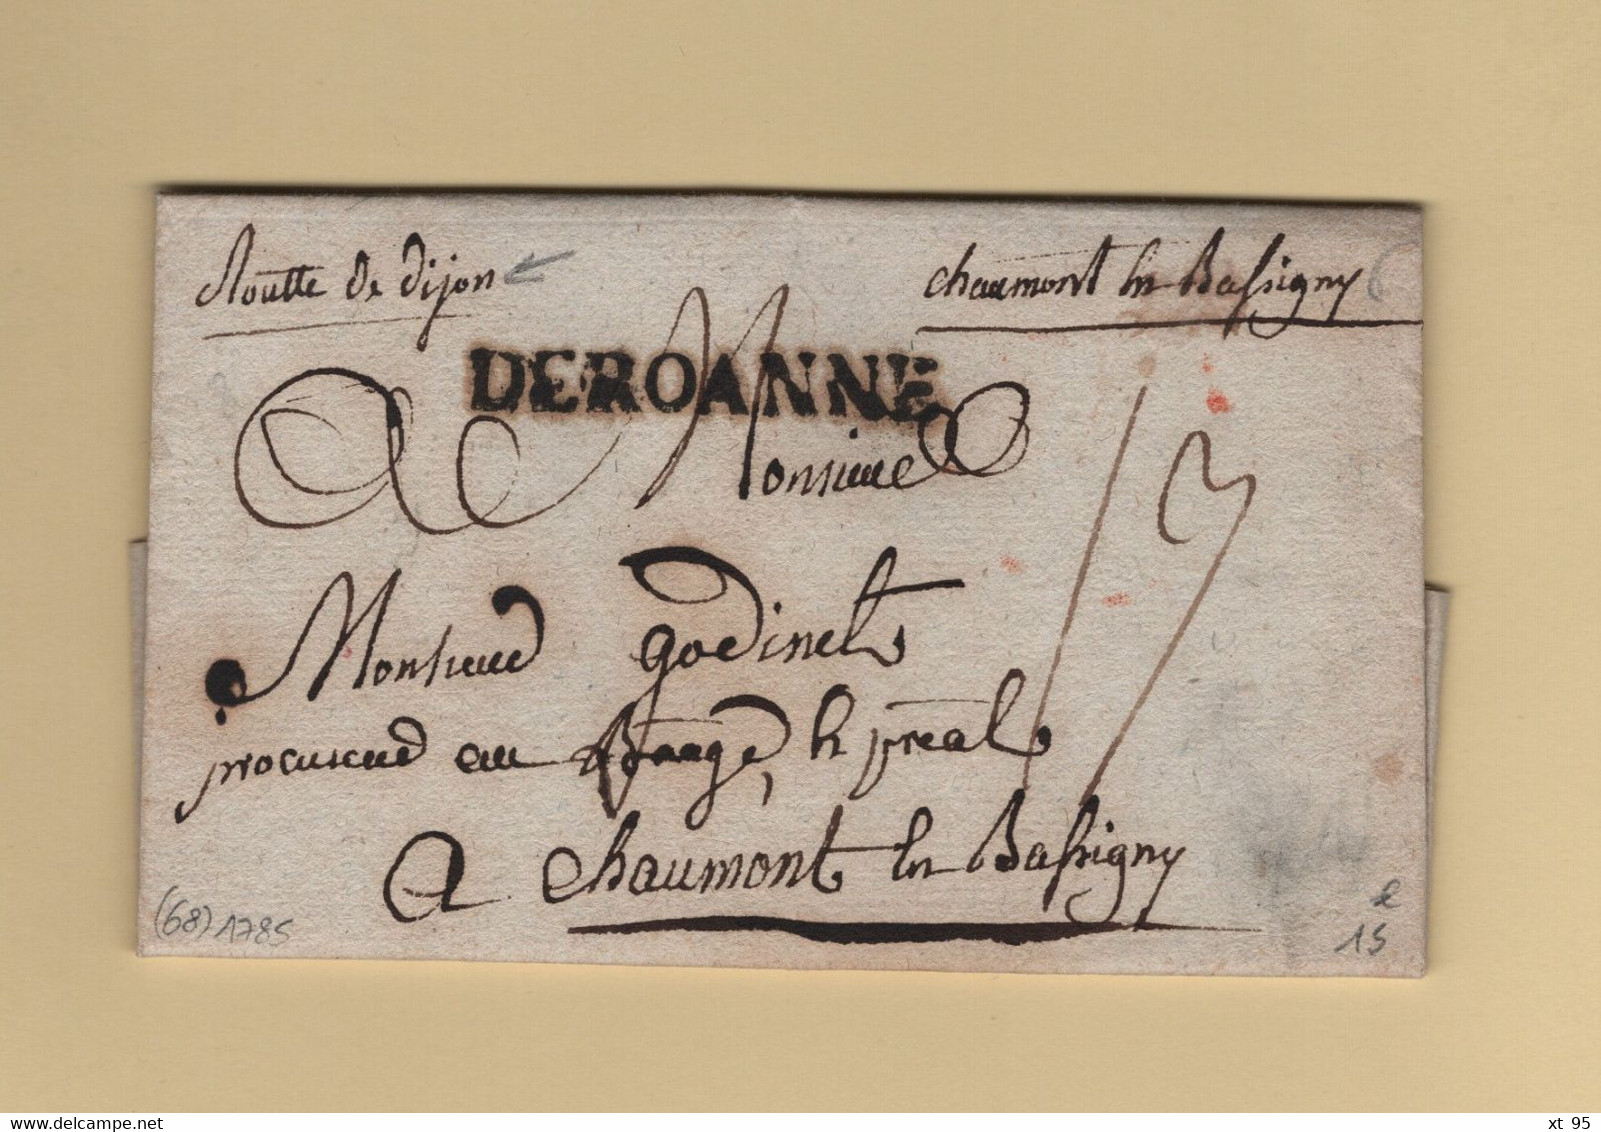 Routte de dijon
chaumont En Bassigny
DEROANNE
A Monsieur
13
Monsieur godinet
procureur au Baage, & préal
A chaumont En Bassigny
(68) 1785
e
15
www.delcampe.net
xt 95